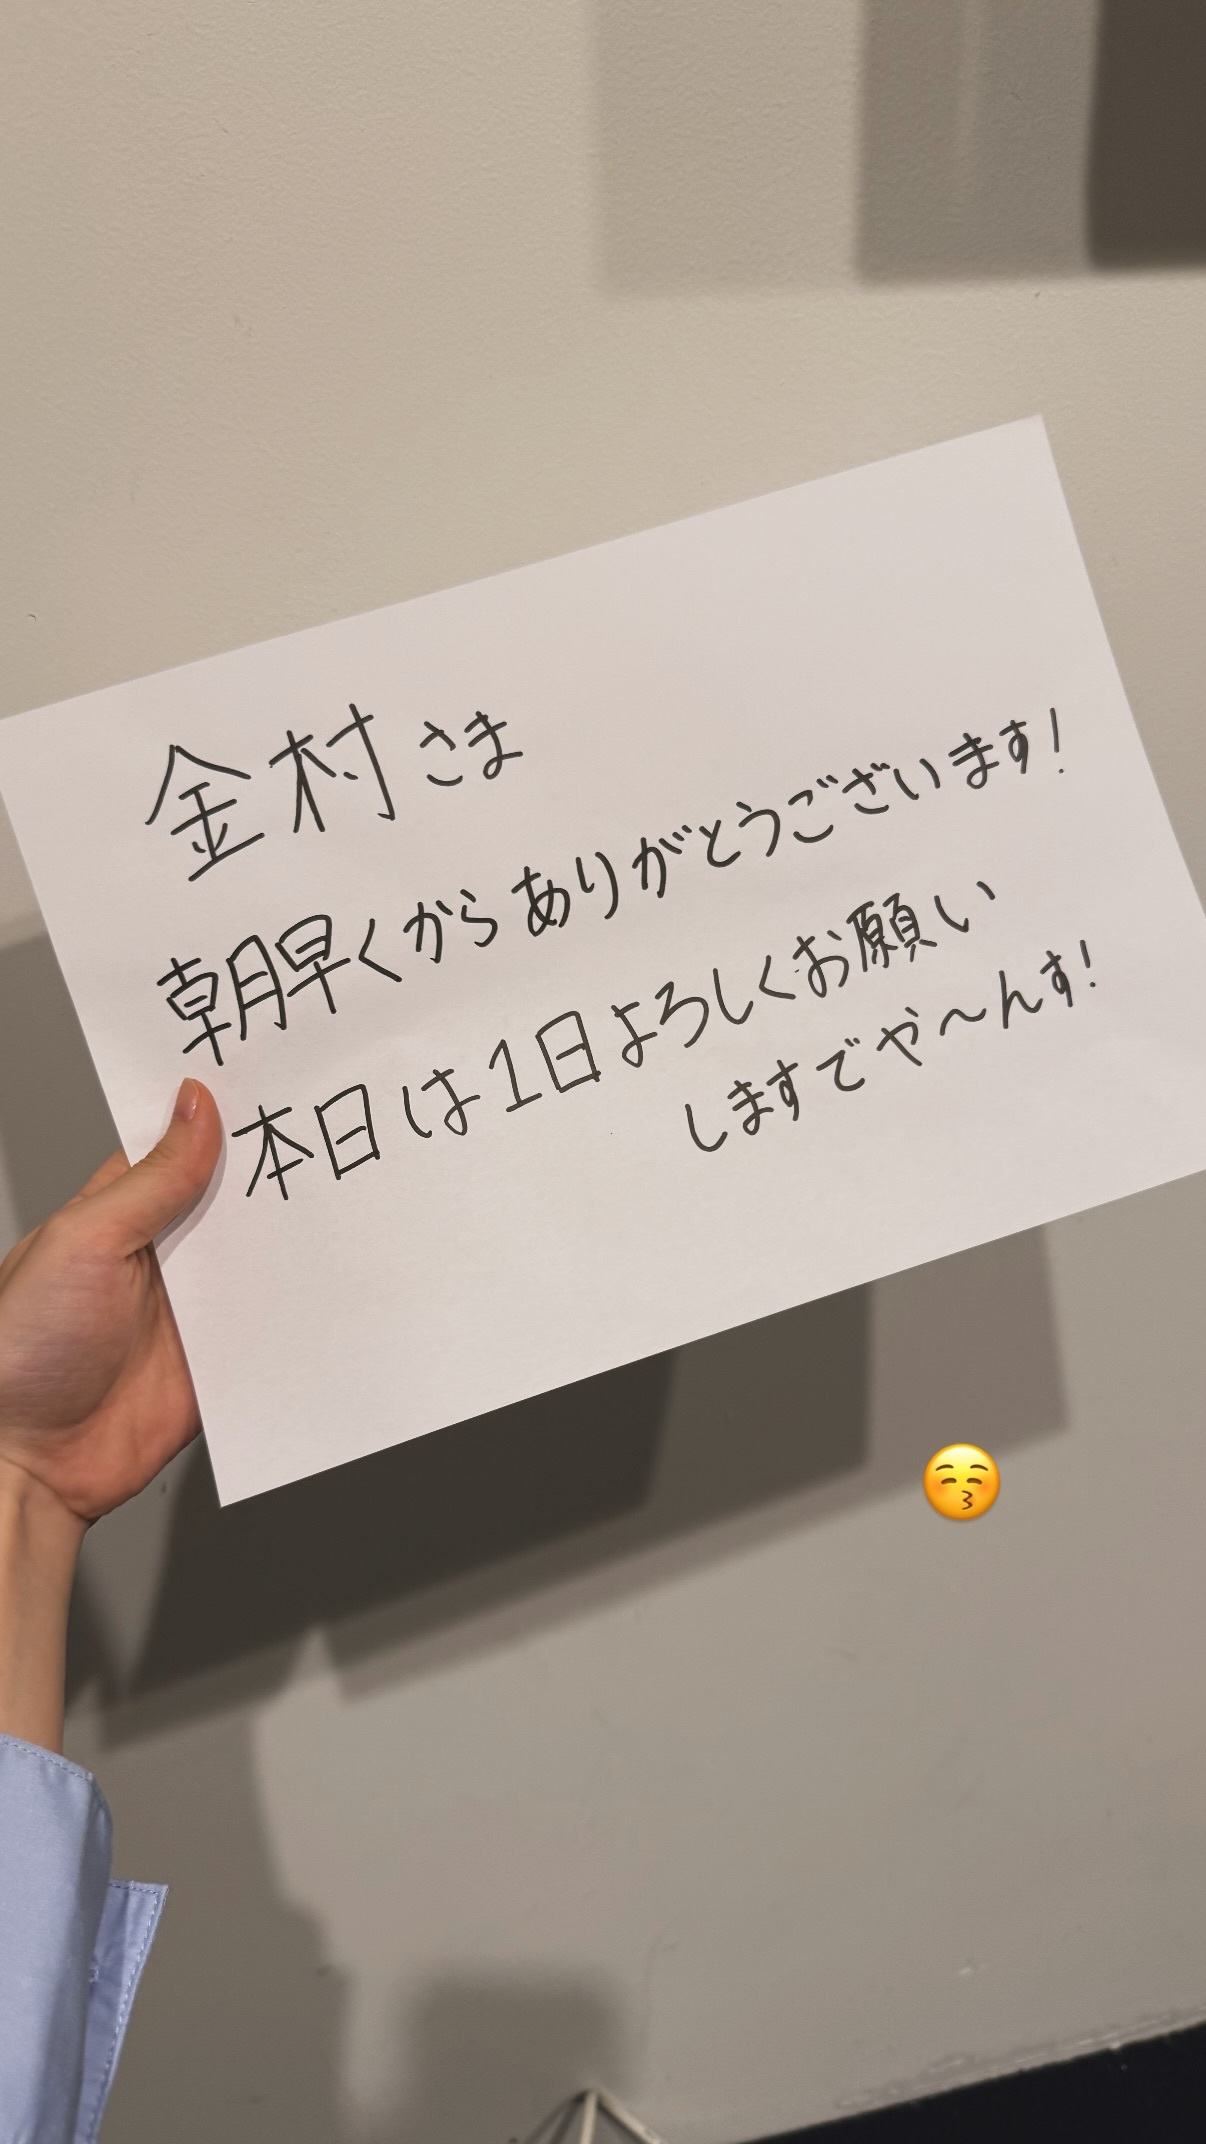 金村さま
朝早くからありがとうございます!
本日は1日よろしくお願い
しますでや〜んす!